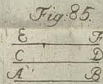 Fig: 85.
E F
C D
A B